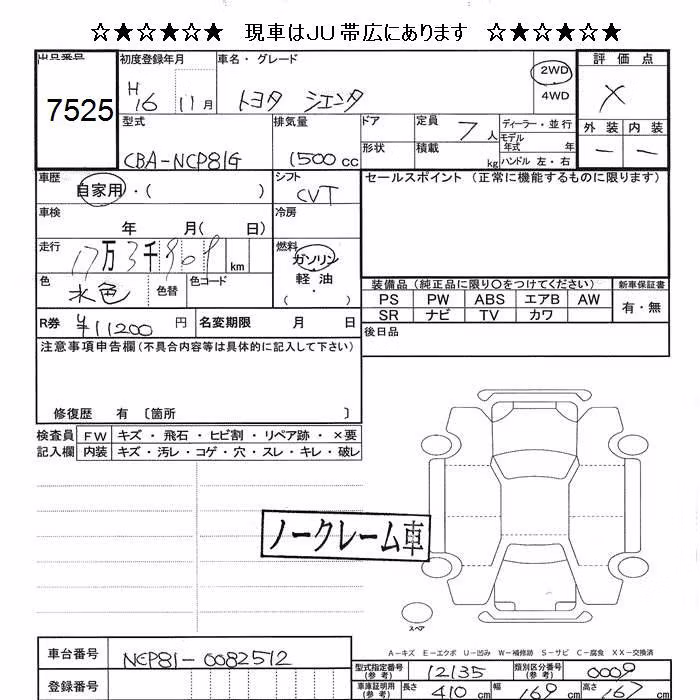 ☆★☆★☆★ 現車はJU帯広にあります ☆★☆★☆★
出品番号 初度登録年月 車名・グレード 2WD 4WD 評価点
7525 H16 11月 トヨタ シエンタ ×
型式 排気量 ドア 定員 7人 ディーラー・並行 外装 内装
CBA-NCP81G 1500cc 形状 積載 kg モデル年式 年 ハンドル 左・右 － －
車歴 自家用・( ) シフト CVT セールスポイント (正常に機能するものに限ります)
車検 年 月( 日) 冷房
走行 17万3千909km 燃料 ガソリン 軽油 ・( )
色 水色 色替 色コード
装備品 (純正品に限り〇をつけてください) 新車保証書
PS PW ABS エアB AW 有・無
SR ナビ TV カワ
R券 ¥11200円 名変期限 月 日 後日品
注意事項申告欄(不具合内容等は具体的に記入して下さい)
修復歴 有 〔箇所 〕
検査員 FW キズ・飛石・ヒビ割・リペア跡・×要
記入欄 内装 キズ・汚レ・コゲ・穴・スレ・キレ・破レ
ノークレーム車
スペア
A－キズ E－エクボ U－凹み W－補修跡 S－サビ C－腐食 XX－交換済
車台番号 NCP81-0082512
型式指定番号(参考) 12135 類別区分番号(参考) 0009
登録番号 車庫証明用(参考) 長さ 410cm 幅 169cm 高さ 167cm